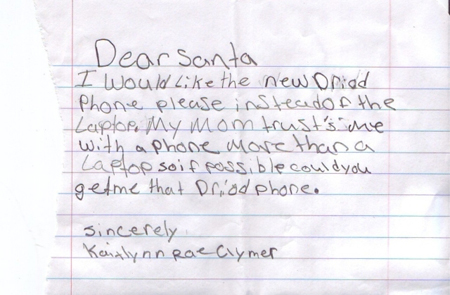 Dear santa
I would like the new Driod
Phone please instead of the
Laptop. My Mom trust's me
with a phone more than a
Laptop so if possible could you
get me that Driod phone.
sincerely
Kaitlynn Rae Clymer